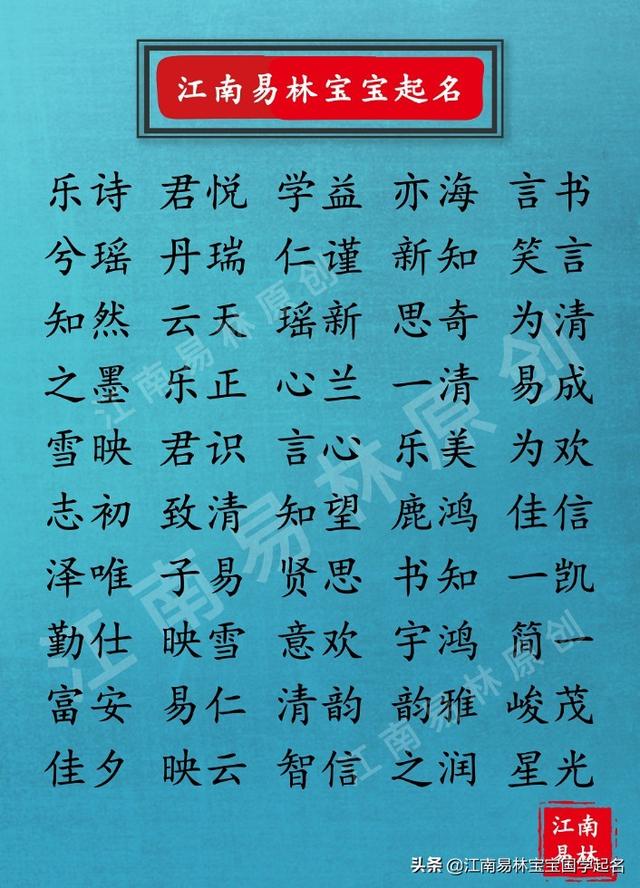 江南易林宝宝起名
乐诗 君悦 学益 亦海 言书
兮瑶 丹瑞 仁谨 新知 笑言
知然 云天 瑶新 思奇 为清
之墨 乐正 心兰 一清 易成
雪映 君识 言心 乐美 为欢
志初 致清 知望 鹿鸿 佳信
泽唯 子易 贤思 书知 一凯
勤仕 映雪 意欢 宇鸿 简一
富安 易仁 清韵 韵雅 峻茂
佳夕 映云 智信 之润 星光
江南易林原创
江南易林原创
江南易林原创
江南
易林
头条 @江南易林宝宝国学起名